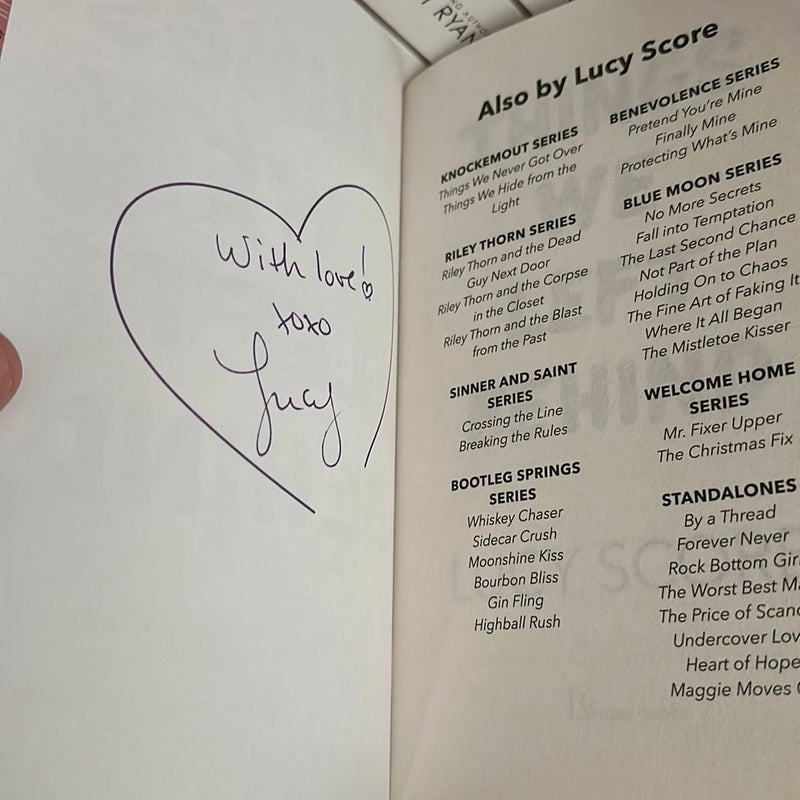 RYAN
With love!
xoxo
Lucy
Also by Lucy Score
KNOCKEMOUT SERIES
Things We Never Got Over
Things We Hide from the
Light
RILEY THORN SERIES
Riley Thorn and the Dead
Guy Next Door
Riley Thorn and the Corpse
in the Closet
Riley Thorn and the Blast
from the Past
SINNER AND SAINT
SERIES
Crossing the Line
Breaking the Rules
BOOTLEG SPRINGS
SERIES
Whiskey Chaser
Sidecar Crush
Moonshine Kiss
Bourbon Bliss
Gin Fling
Highball Rush
BENEVOLENCE SERIES
Pretend You're Mine
Finally Mine
Protecting What's Mine
BLUE MOON SERIES
No More Secrets
Fall into Temptation
The Last Second Chance
Not Part of the Plan
Holding On to Chaos
The Fine Art of Faking It
Where It All Began
The Mistletoe Kisser
WELCOME HOME
SERIES
Mr. Fixer Upper
The Christmas Fix
STANDALONES
By a Thread
Forever Never
Rock Bottom Girl
The Worst Best Ma
The Price of Scand
Undercover Lov
Heart of Hope
Maggie Moves